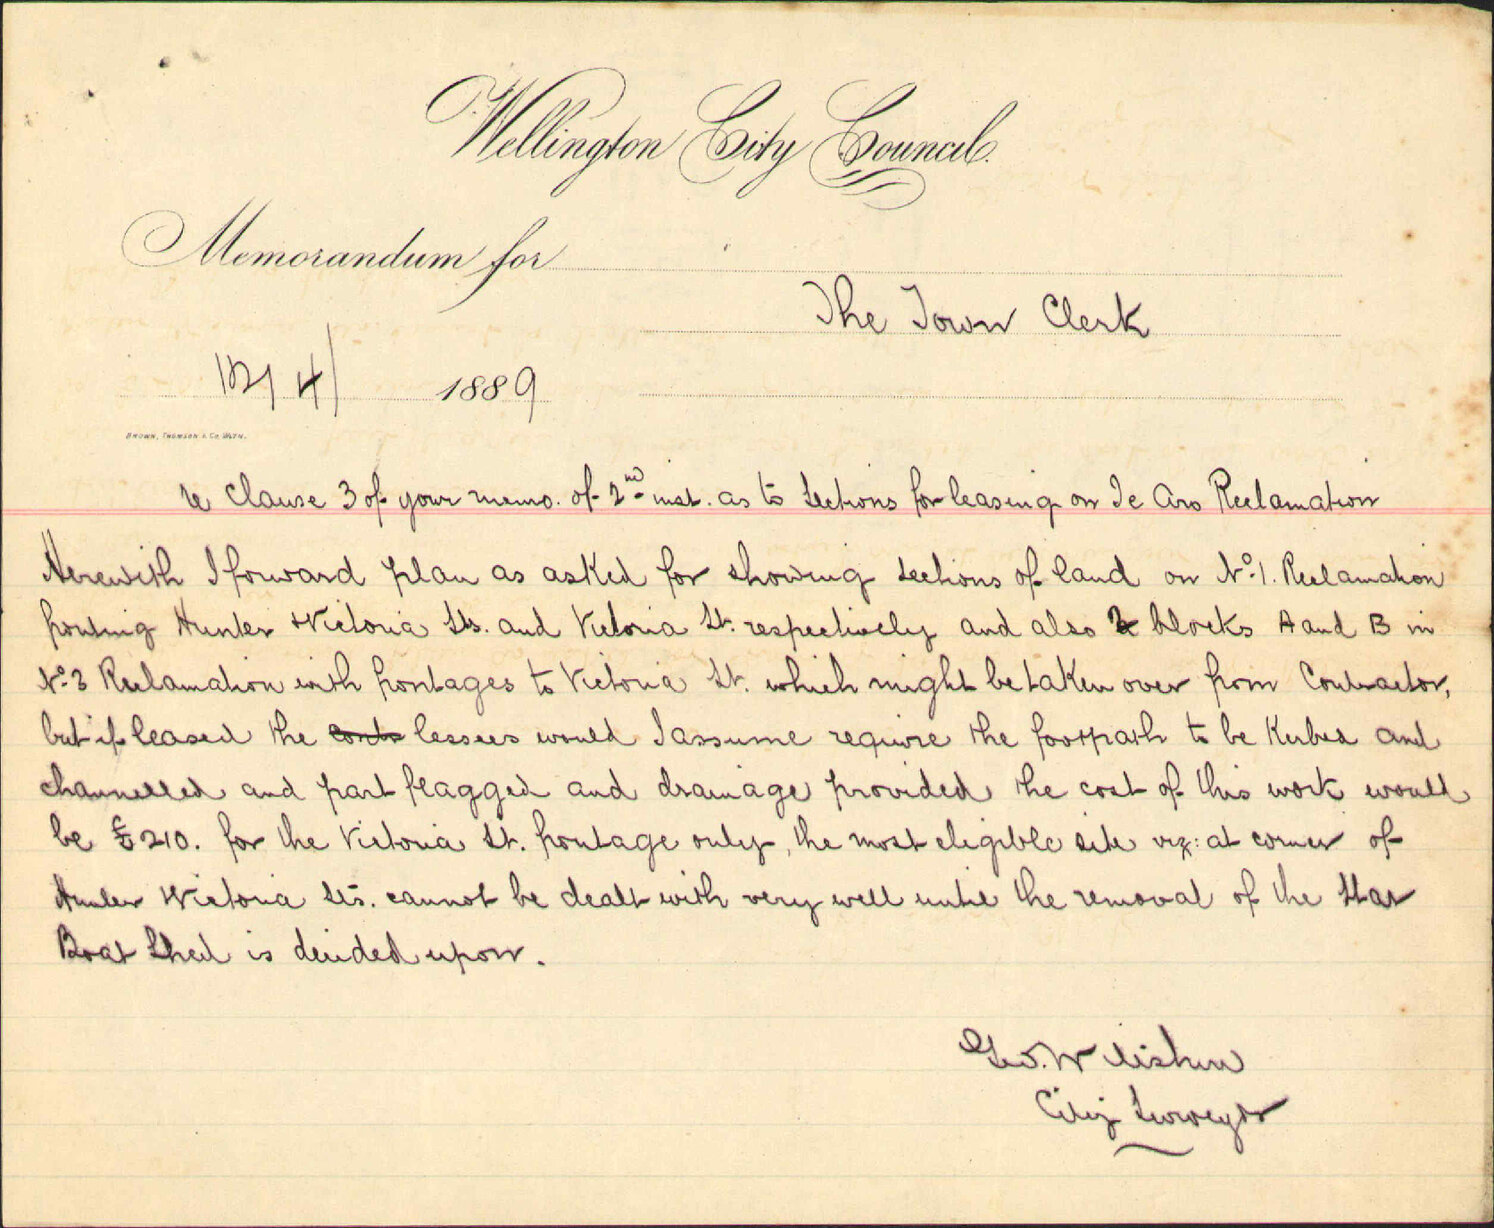 Wellington City Council.
Memorandum for
The Town Clerk
12/4/ 1889
BROWN, THOMSON & Co. WGTN.
re Clause 3 of your memo. of 2nd inst. as to sections for leasing on Te Aro Reclamation
Herewith I forward plan as asked for showing sections of land on No. 1. Reclamation
fronting Hunter & Victoria Sts. and Victoria St. respectively and also 2 blocks A and B in
No. 3 Reclamation with frontages to Victoria St. which might be taken over from Contractor,
but if leased the conts lessees would I assume require the footpath to be Kerbed and
channelled and part flagged and drainage provided the cost of this work would
be £210. for the Victoria St. frontage only, the most eligible site viz: at corner of
Hunter & Victoria Sts. cannot be dealt with very well until the removal of the Star
Boat Shed is decided upon.
Geo. W
City Surveyor